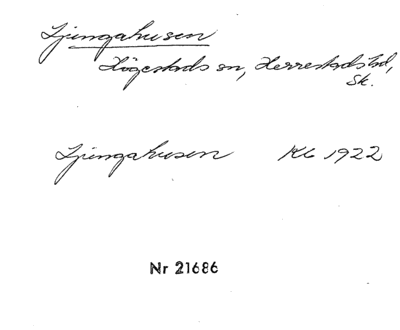 Ljungahusen
Högestads sn, Herrestads hd,
Sk.
Ljungahusen Kb 1922
Nr 21686